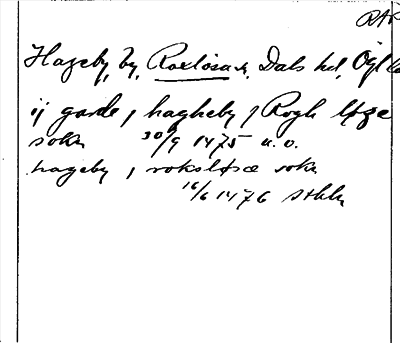 RAP
Hageby, by, Roxlösa sn, Dals hd, Ögl
ij garde j hagheby j Rogh løze
sokn 30/9 1475 u. o.
hageby j roksløsæ sokn
16/6 1476 sthlm